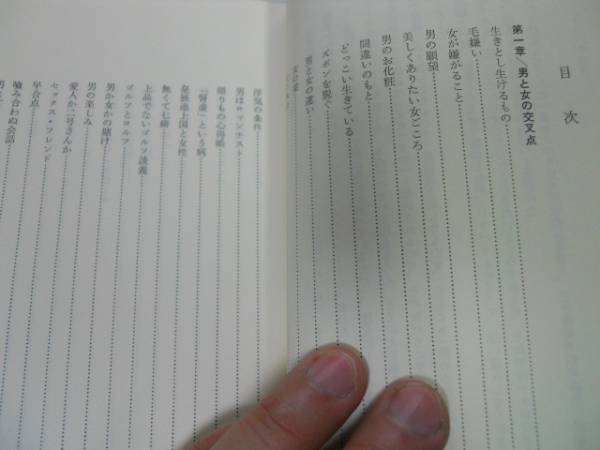 目次
第一章/男と女の交叉点
生きとし生けるもの
毛嫌い
女が嫌がること
男の願望
美しくありたい女ごころ
男のお化粧
間違いのもと
どっこい生きている
ズボンを脱ぐ
男と女の違い
浮気の条件
男はロマンチスト
贈りもの心得帳
「腎虚」という病
発展途上国と女性
無くて七癖
上品でないゴルフ談義
ゴルフとヨルフ
男か女かの賭け
男の楽しみ
愛人か二号さんか
セックス・フレンド
早合点
噛み合わぬ会話